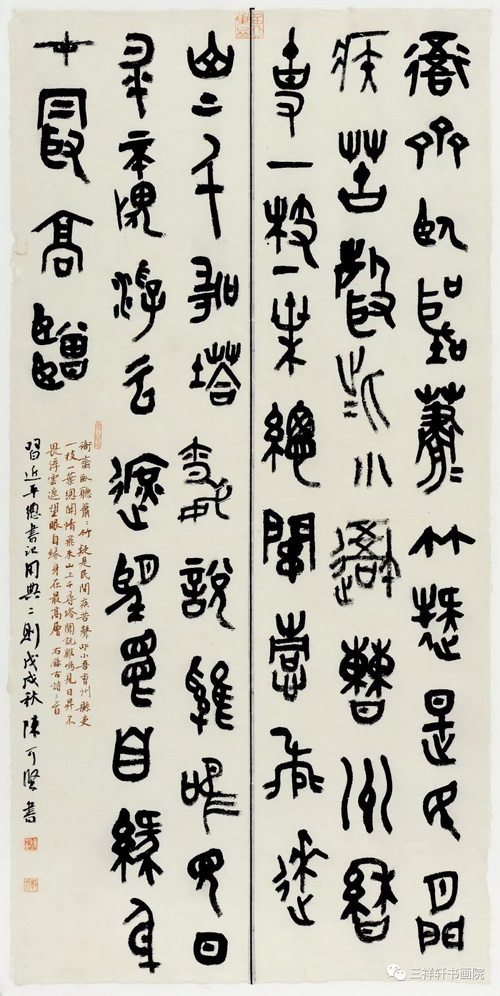 衙齋臥聽蕭〻竹疑是民間
疾苦聲些小吾曹州縣
吏一枝一葉總關情飛來
山上千尋塔聞說雞鳴見日
昇不畏浮雲遮望眼自緣身
在最高層
衙齋臥聽蕭〻竹疑是民間疾苦聲些小吾曹州縣吏
一枝一葉總關情飛來山上千尋塔聞說雞鳴見日昇不
畏浮雲遮望眼自緣身在最高層 古詩二首
習近平總書記用典二則戊戌秋陳可賢書
三祥轩书画院